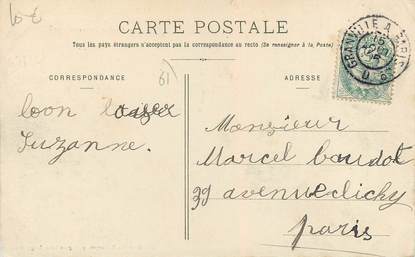 CARTE POSTALE
Tous les pays étrangers n'acceptent pas la correspondance au recto (Se renseigner à la Poste)
CORRESPONDANCE
ADRESSE
61
GRANVILLE A PARIS
15
Suzanne.
Monsieur
Marcel baudot
39 avenue clichy
paris